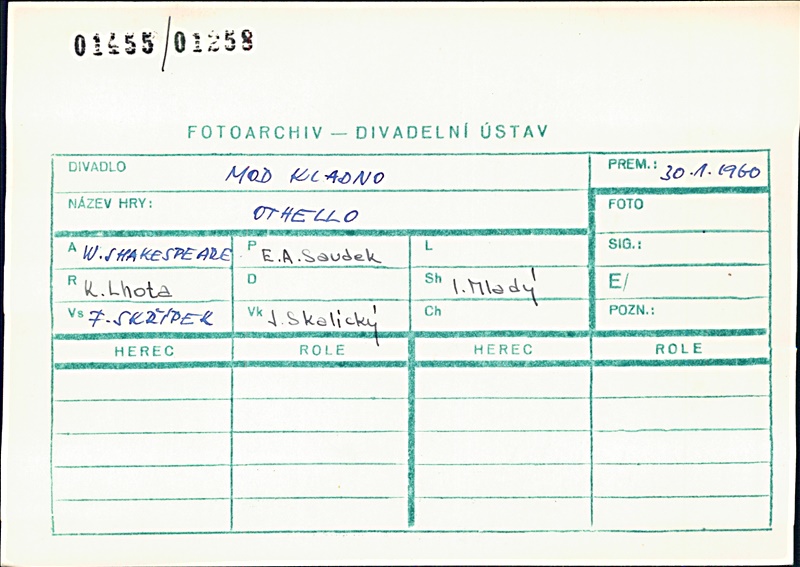 01455/01258
FOTOARCHIV — DIVADELNÍ ÚSTAV
DIVADLO MOD KLADNO PREM.: 30.1.1960
NÁZEV HRY: OTHELLO FOTO
A W. SHAKESPEARE P E.A. Saudek L SIG.:
R K. Lhota D Sh I. Mladý E/
Vs F. SKŘÍPEK Vk J. Skalický Ch POZN.:
HEREC ROLE HEREC ROLE